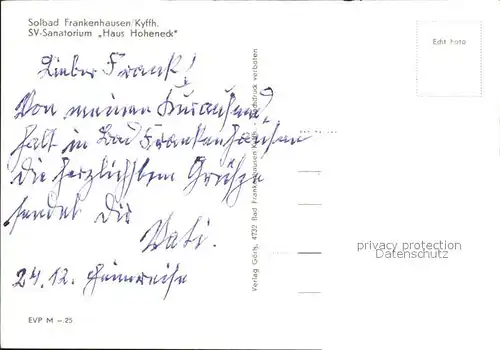 Solbad Frankenhausen/Kyffh.
SV-Sanatorium „Haus Hoheneck"
Echt Foto
Lieber Frank!
Von meinen Kuraufent,
halt in Bad Frankenhausen
die herzlichsten Grüße
sendet Dir
Vati.
24.12. Heimreise
Verlag Görh, 4732 Bad Frankenhausen Kyffh. - Nachdruck verboten
privacy protection
Datenschutz
EVP M -.25